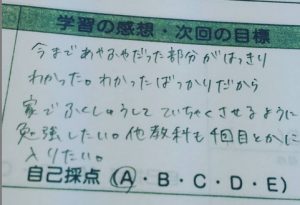 学習の感想・次回の目標
今まであやふやだった部分がはっきり
わかった。わかったばっかりだから
家でふくしゅうしてていちゃくさせるように
勉強したい。他教科も4回目とかに
入りたい。
自己採点(A・B・C・D・E)